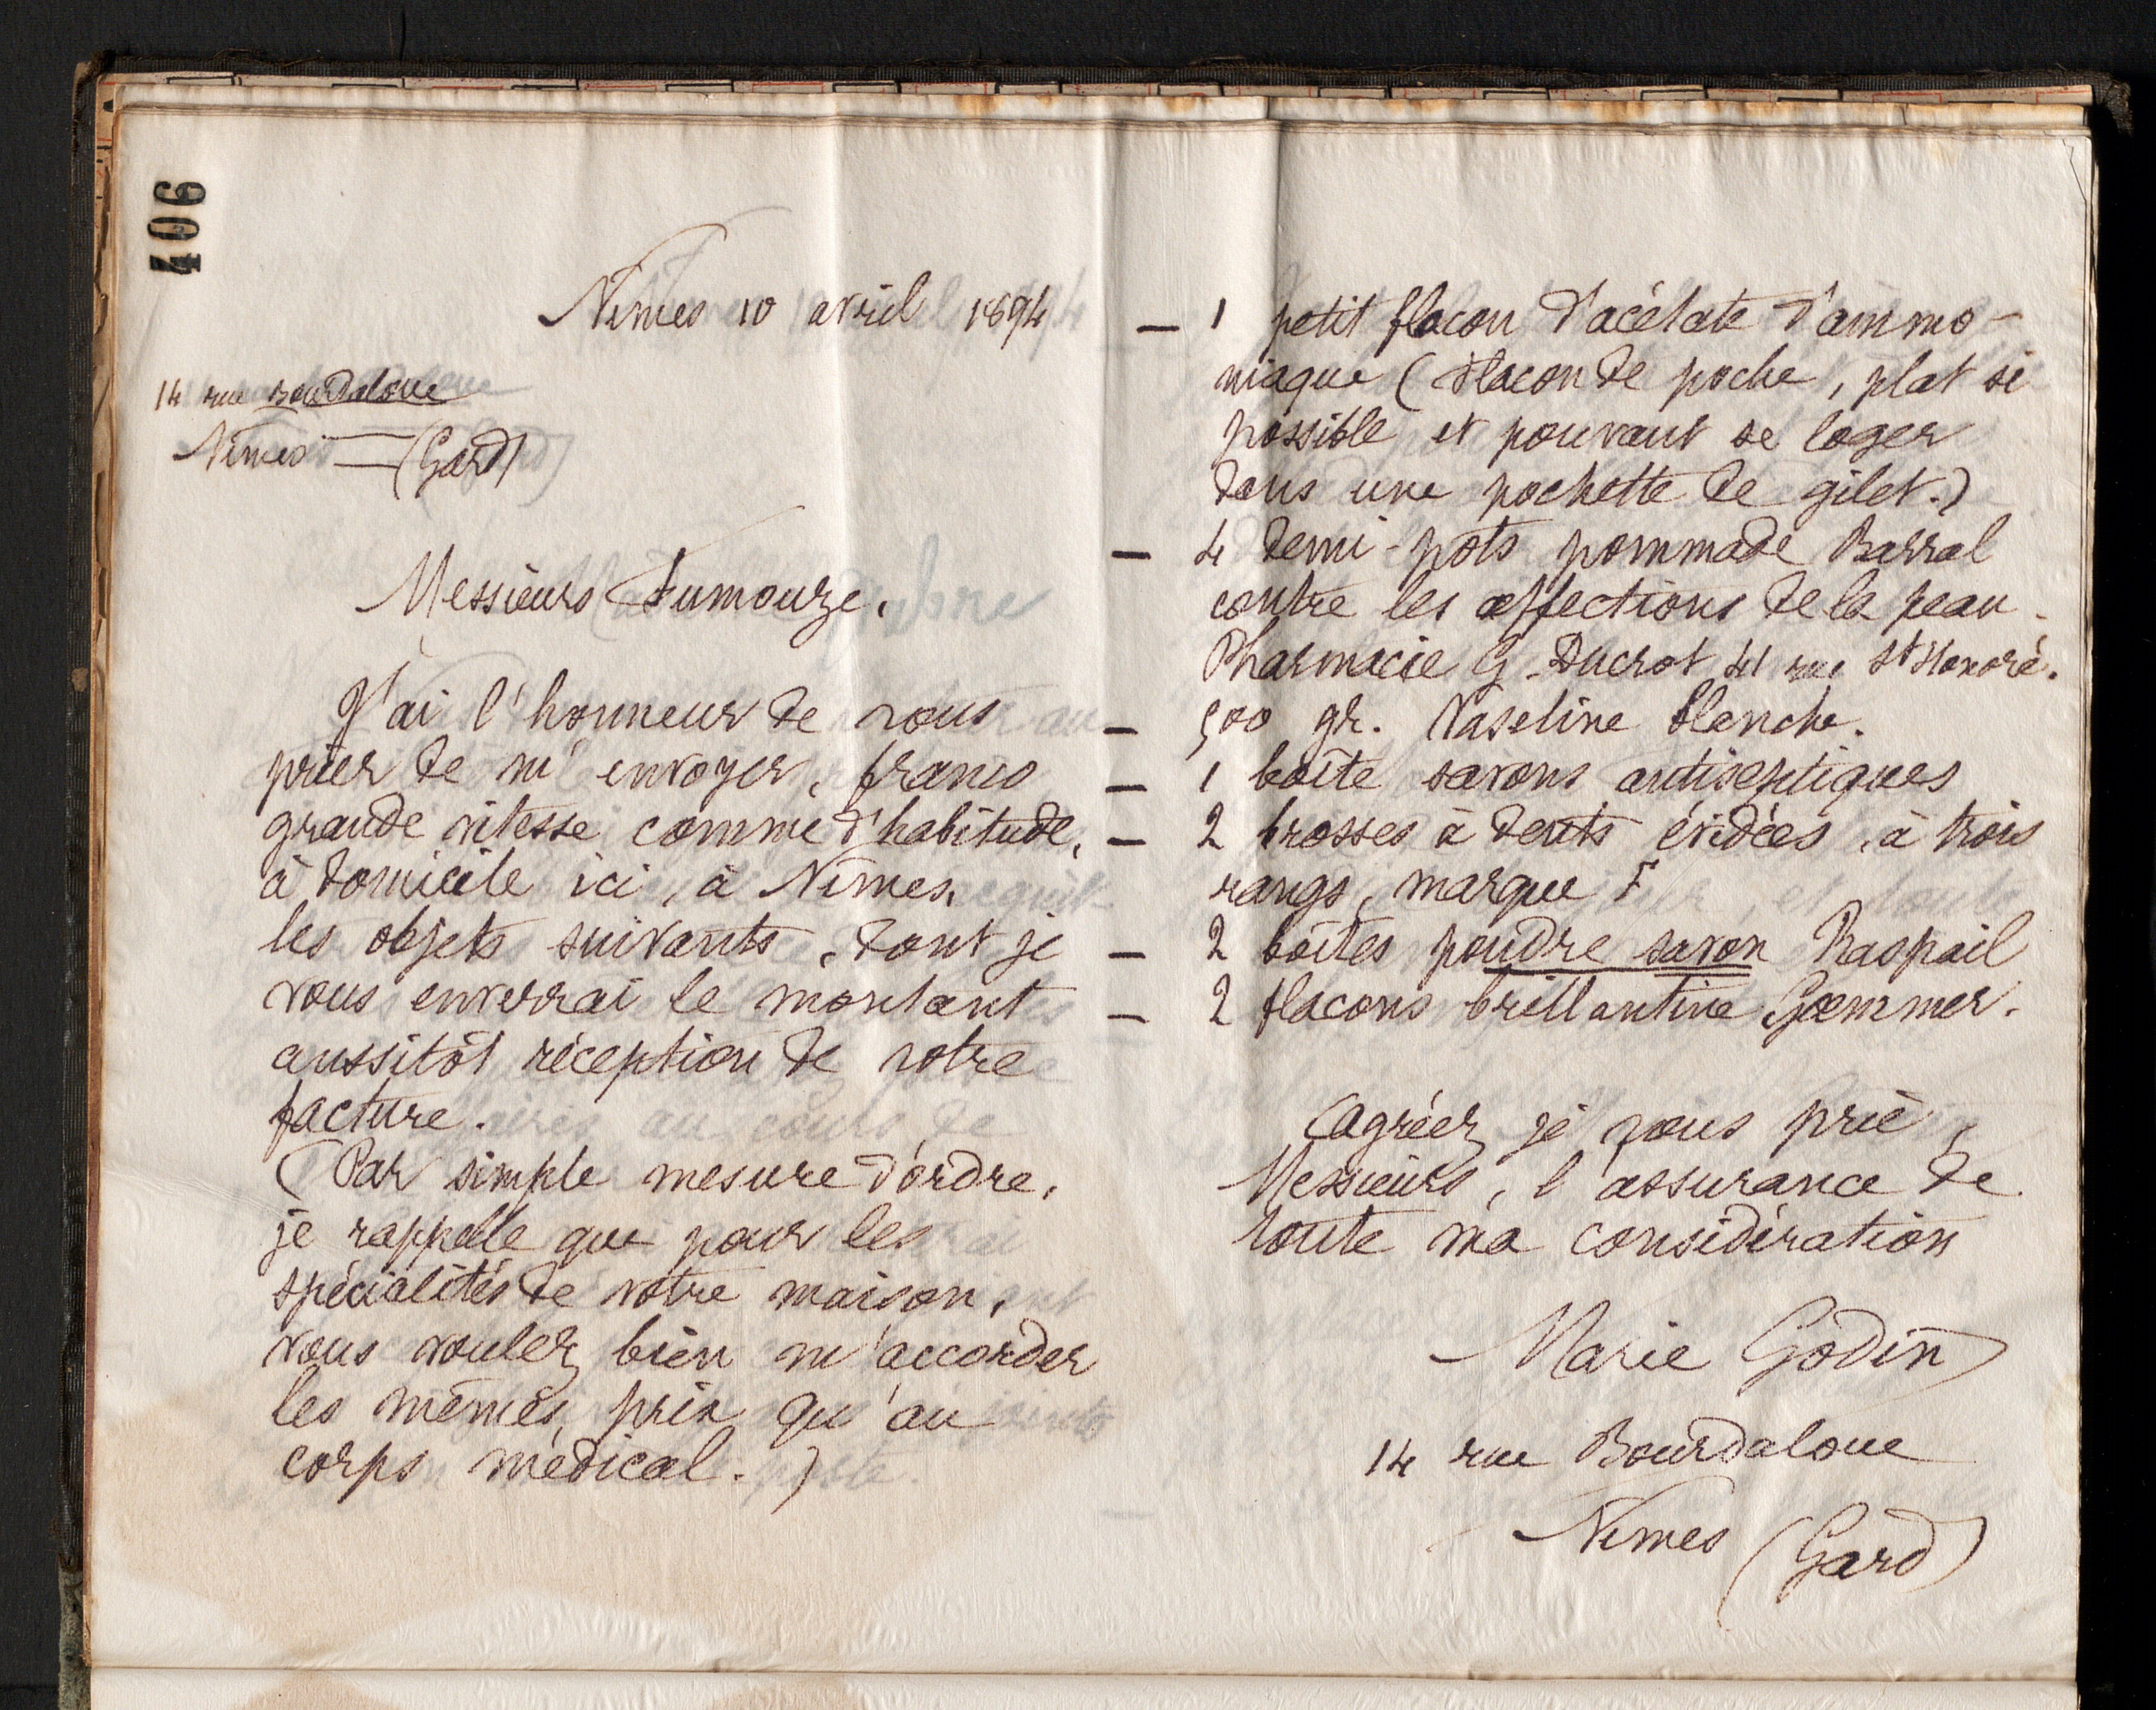 406
Nîmes 10 avril 1894
14 rue Bourdaloue
Nîmes — (Gard)
Messieurs Fumouze,
J'ai l'honneur de vous
prier de m'envoyer, franco
grande vitesse comme d'habitude,
à domicile ici, à Nîmes,
les objets suivants, dont je
vous enverrai le montant
aussitôt réception de votre
facture.
(Par simple mesure d'ordre,
je rappelle que pour les
spécialités de votre maison,
vous voulez bien m'accorder
les mêmes prix qu'au
corps médical.)
— 1 petit flacon d'acétate d'ammo-
niaque (flacon de poche, plat si
possible et pouvant se loger
dans une pochette de gilet.)
— 4 demi-pots pommade Barral
contre les affections de la peau -
Pharmacie G. Ducrot 41 rue St Honoré.
— 500 gr. Vaseline blanche.
— 1 boîte savons antiseptiques
— 2 brosses à dents évidées, à trois
rangs, marque F
— 2 boîtes poudre savon Raspail
— 2 flacons brillantine Gommer.
Agréez, je vous prie,
Messieurs, l'assurance de
toute ma considération
Marie Godin
14 rue Bourdaloue
Nîmes (Gard)